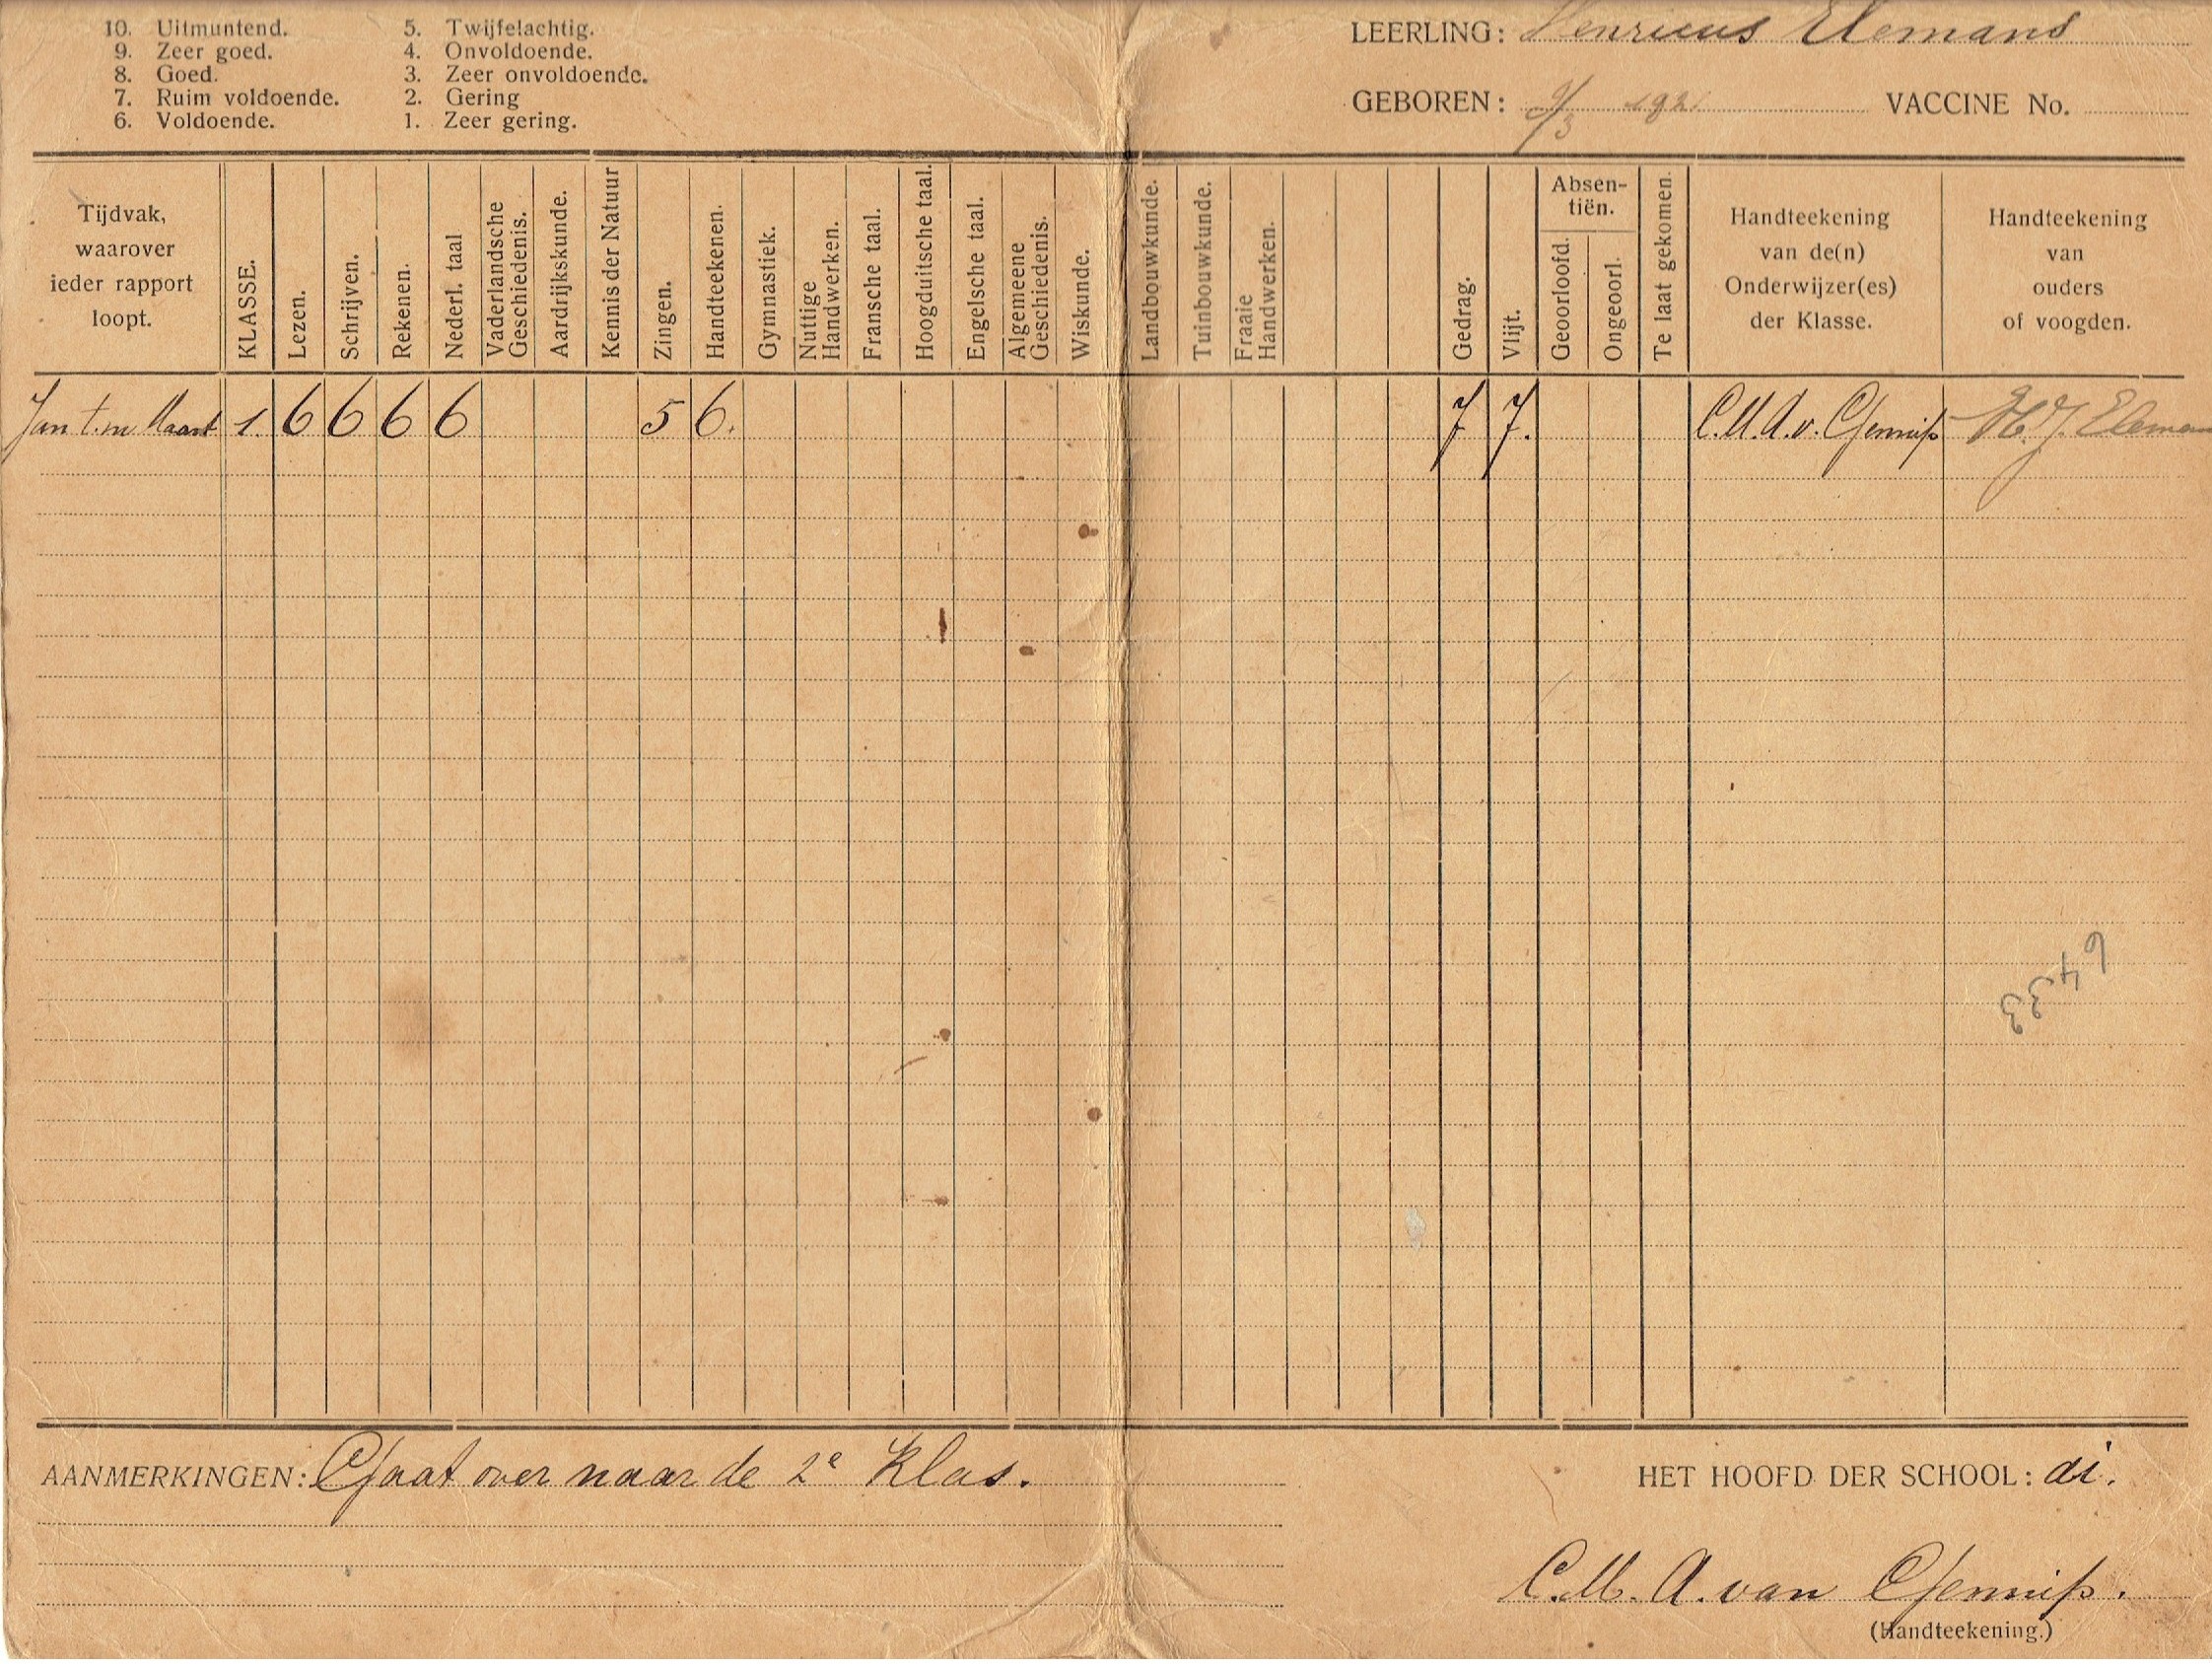 10. Uitmuntend. 5. Twijfelachtig.
9. Zeer goed. 4. Onvoldoende.
8. Goed. 3. Zeer onvoldoende.
7. Ruim voldoende. 2. Gering
6. Voldoende. 1. Zeer gering.
LEERLING: Henricus Elemans
GEBOREN: 9/3 1921 VACCINE No.
Tijdvak,
waarover
ieder rapport
loopt.
KLASSE.
Lezen.
Schrijven.
Rekenen.
Nederl. taal
Vaderlandsche
Geschiedenis.
Aardrijkskunde.
Kennis der Natuur
Zingen.
Handteekenen.
Gymnastiek.
Nuttige
Handwerken.
Fransche taal.
Hoogduitsche taal.
Engelsche taal.
Algemeene
Geschiedenis.
Wiskunde.
Landbouwkunde.
Tuinbouwkunde.
Fraaie
Handwerken.
Gedrag.
Vlijt.
Absen-
tiën.
Geoorloofd.
Ongeoorl.
Te laat gekomen.
Handteekening
van de(n)
Onderwijzer(es)
der Klasse.
Handteekening
van
ouders
of voogden.
Jan t.m Maart 1. 6 6 6 6 5 6. 7 7. C.M.A.v. Gennip H.J. Elemans
6433
AANMERKINGEN: Gaat over naar de 2e Klas.
HET HOOFD DER SCHOOL: ai.
C.M. A. van Gennip.
(Handteekening.)